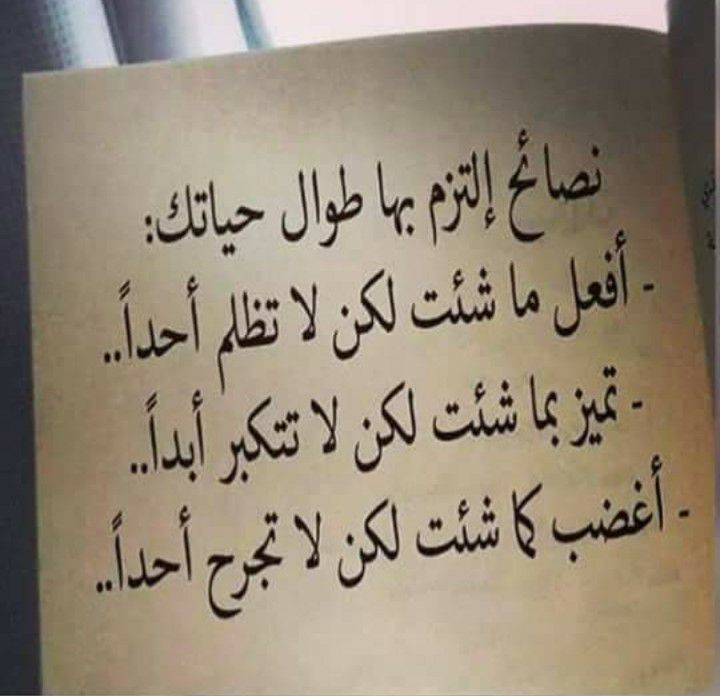 نصائح إلتزم بها طوال حياتك:
- أفعل ما شئت لكن لا تظلم أحداً..
- تميز بما شئت لكن لا تتكبر أبداً..
- أغضب كما شئت لكن لا تجرح أحداً..